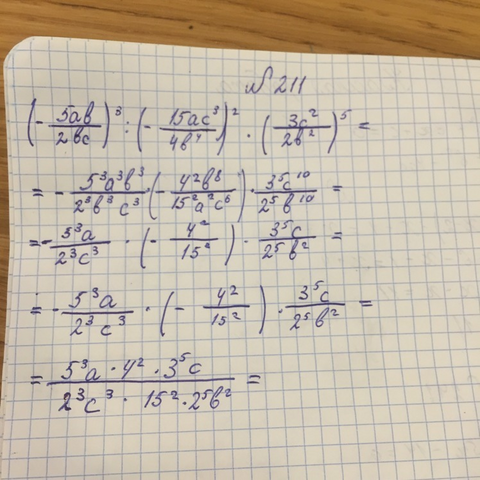 № 211
(- 5ab/2bc)³ : (- 15ac³/4b⁴)² · (3c²/2b²)⁵ =
= - 5³a³b³/2³b³c³ · (- 4²b⁸/15²a²c⁶) · 3⁵c¹⁰/2⁵b¹⁰ =
= - 5³a/2³c³ · (- 4²/15²) · 3⁵c/2⁵b² =
= - 5³a/2³c³ · (- 4²/15²) · 3⁵c/2⁵b² =
= 5³a · 4² · 3⁵c/2³c³ · 15² · 2⁵b² =